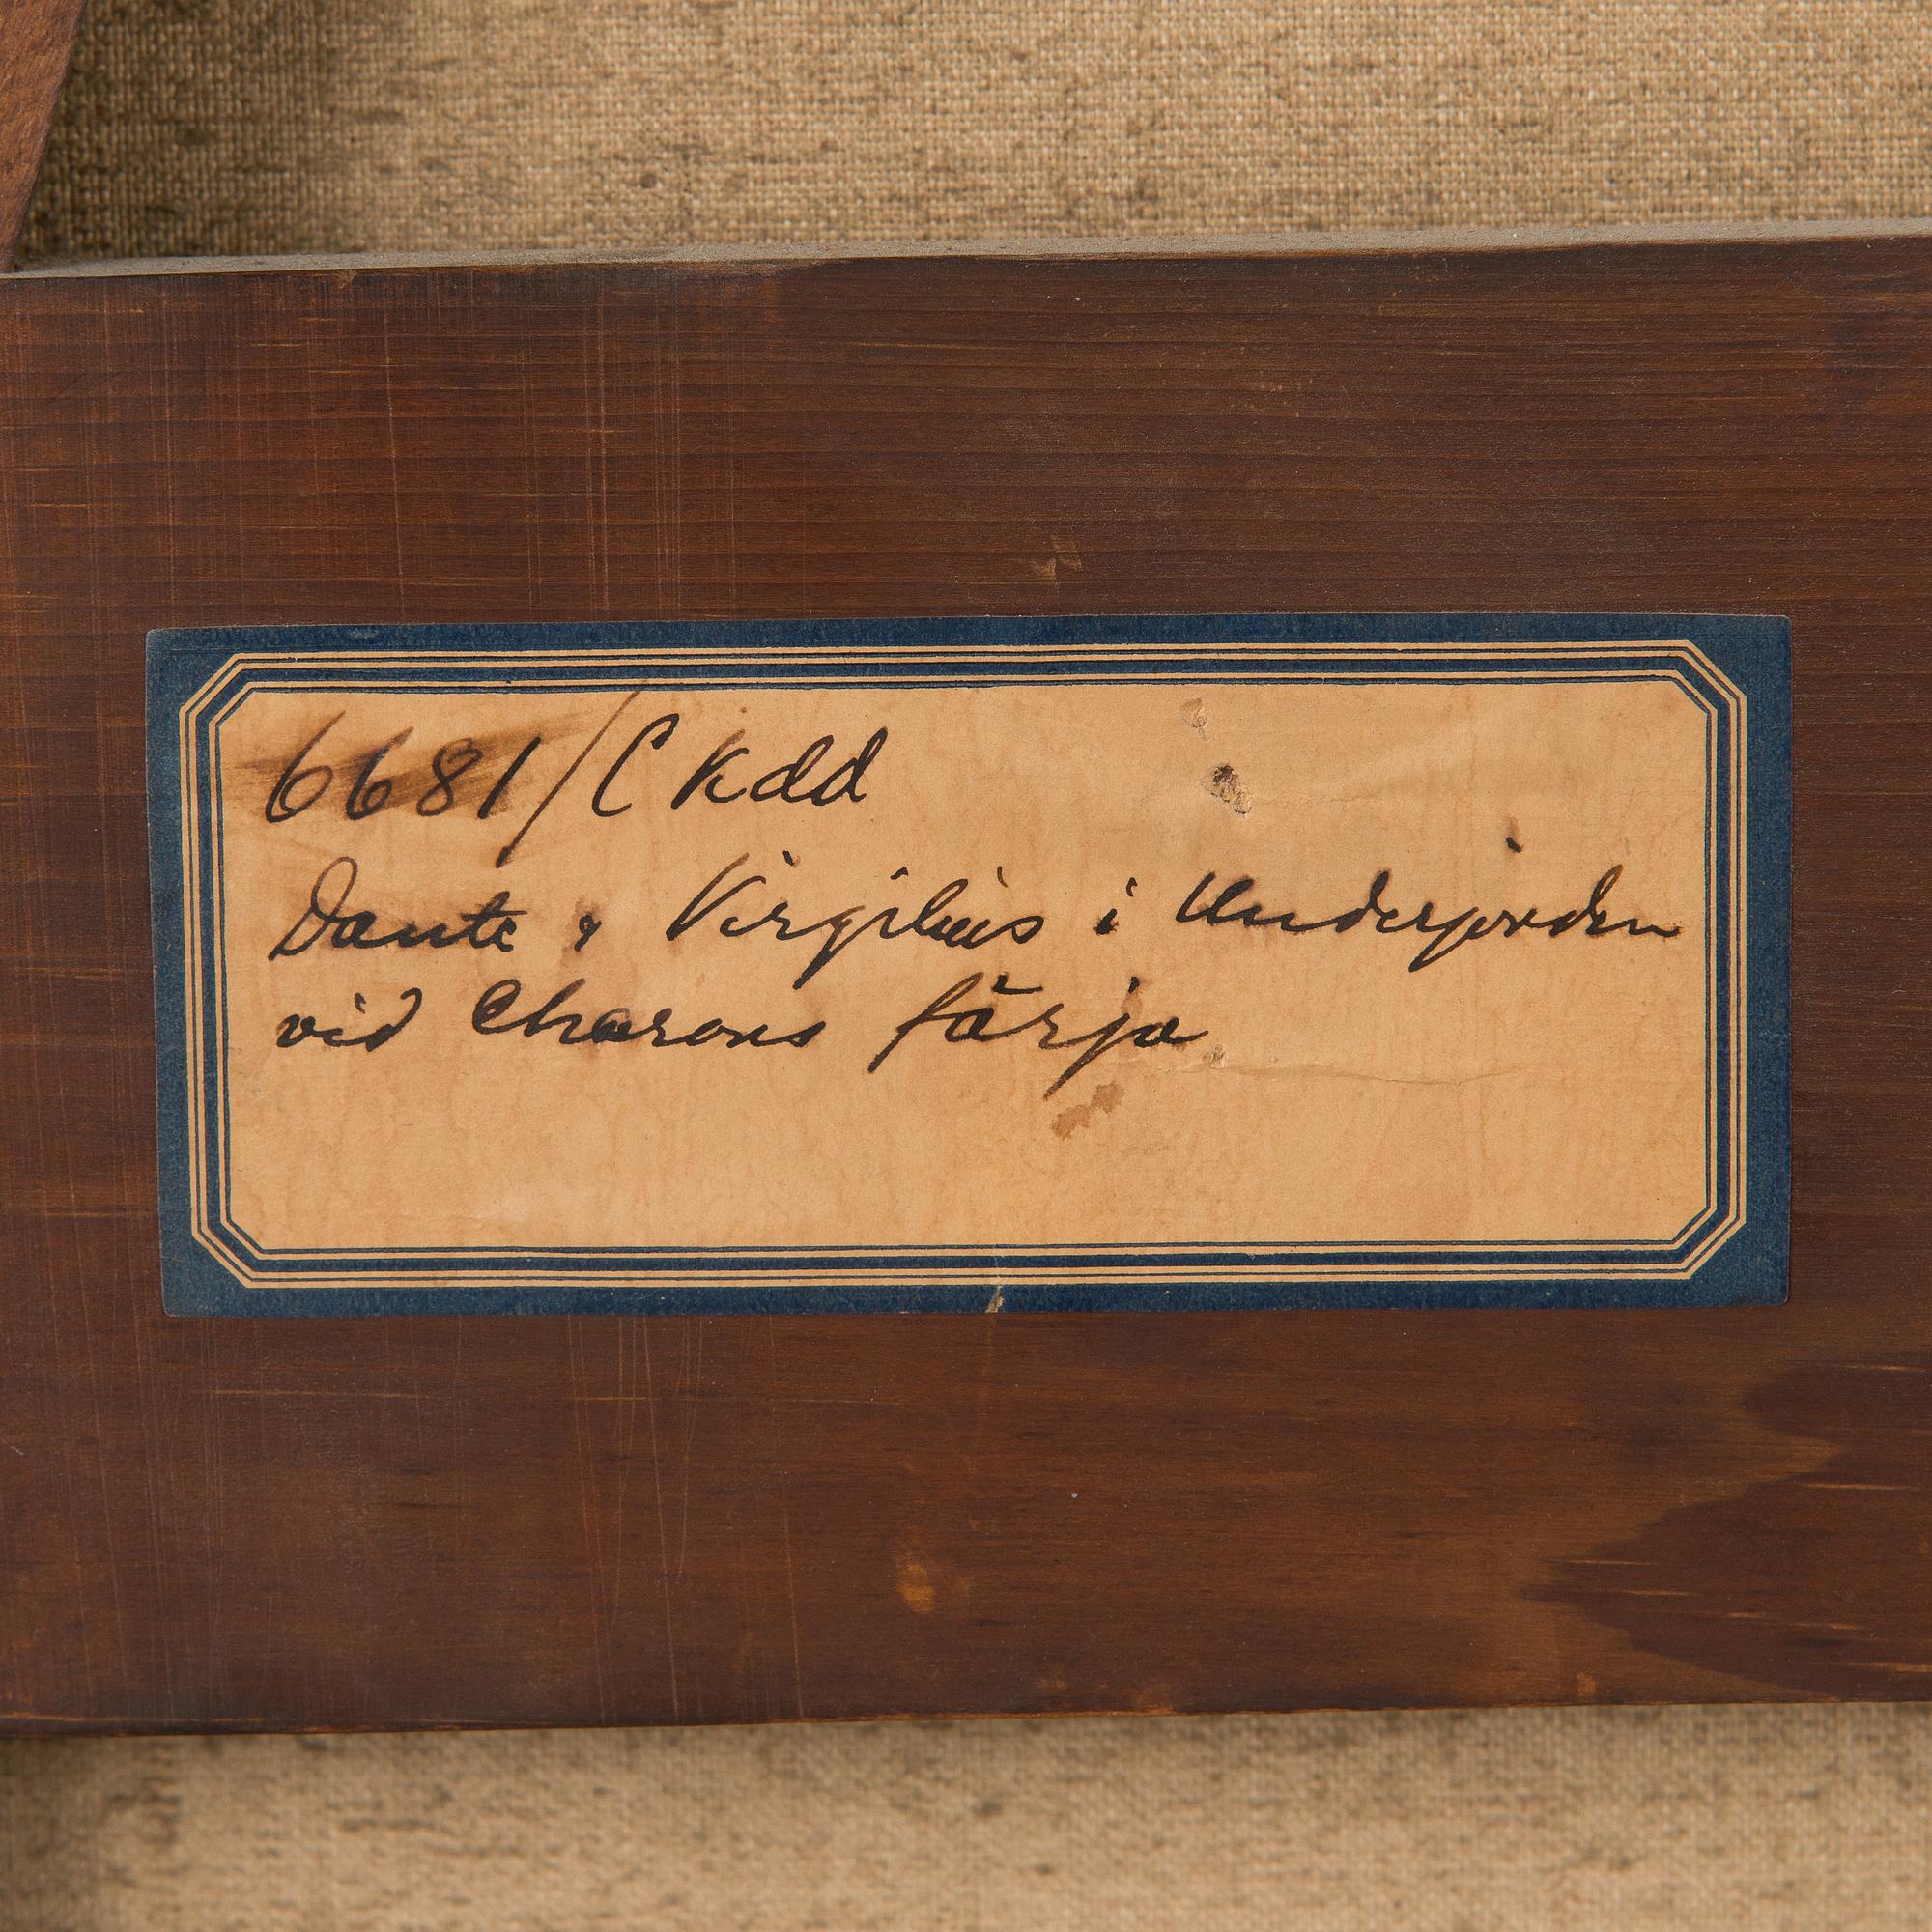 6681/C kdd
Dante & Virgilius i Underjorden
vid Charons färja